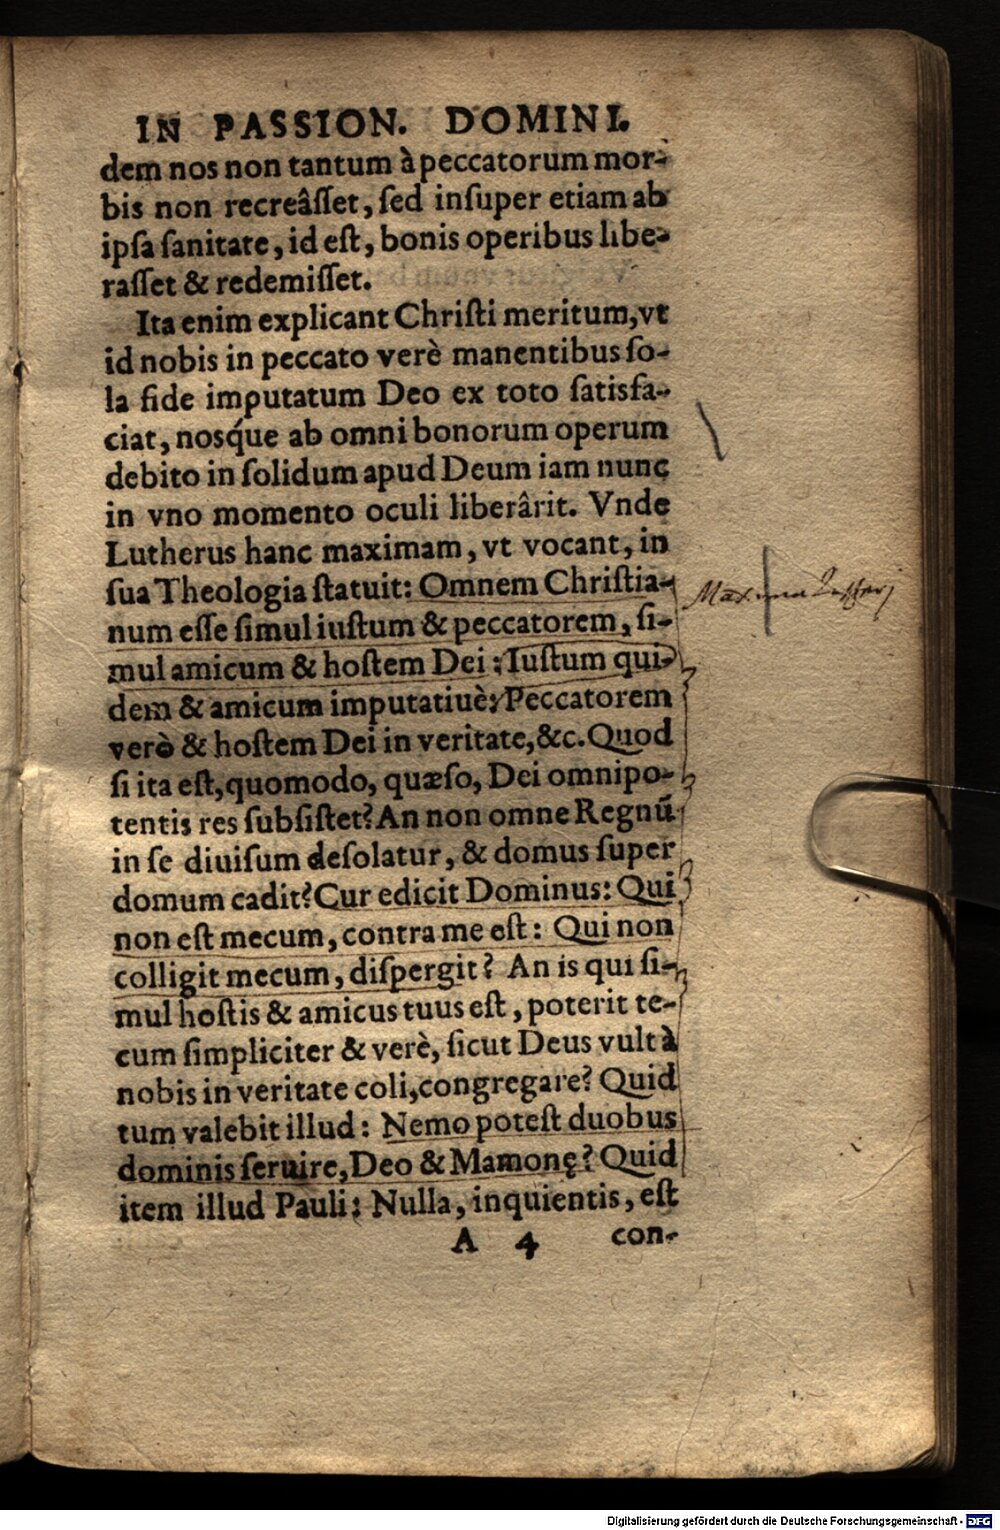 IN PASSION. DOMINI.
dem nos non tantum à peccatorum mor-
bis non recreâſſet, ſed inſuper etiam ab
ipſa ſanitate, id eſt, bonis operibus libe-
raſſet & redemiſſet.
Ita enim explicant Chriſti meritum, vt
id nobis in peccato verè manentibus ſo-
la fide imputatum Deo ex toto ſatisfa-
ciat, nosq́ue ab omni bonorum operum
debito in ſolidum apud Deum iam nunc
in vno momento oculi liberârit. Vnde
Lutherus hanc maximam, vt vocant, in
ſua Theologia ſtatuit: Omnem Chriſtia-
num eſſe ſimul iuſtum & peccatorem, ſi-
mul amicum & hoſtem Dei: Iuſtum qui-
dem & amicum imputatiuè: Peccatorem
verò & hoſtem Dei in veritate, &c. Quod
ſi ita eſt, quomodo, quæſo, Dei omnipo-
tentis res ſubſiſtet? An non omne Regnū
in ſe diuiſum deſolatur, & domus ſuper
domum cadit? Cur edicit Dominus: Qui
non eſt mecum, contra me eſt: Qui non
colligit mecum, diſpergit? An is qui ſi-
mul hoſtis & amicus tuus eſt, poterit te-
cum ſimpliciter & verè, ſicut Deus vult à
nobis in veritate coli, congregare? Quid
tum valebit illud: Nemo poteſt duobus
dominis ſeruire, Deo & Mamonę? Quid
item illud Pauli: Nulla, inquientis, eſt
A 4 con-
Maxima
Digitalisierung gefördert durch die Deutsche Forschungsgemeinschaft - DFG